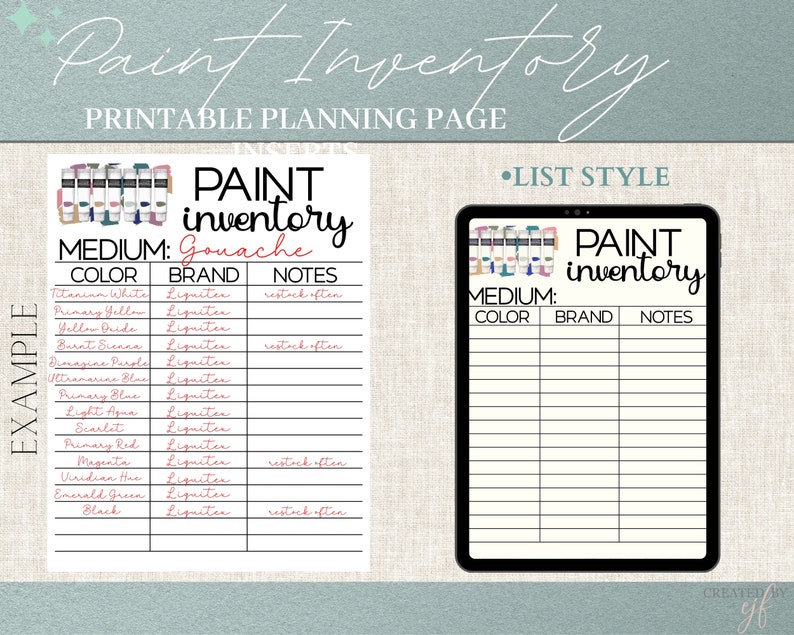 Paint Inventory
PRINTABLE PLANNING PAGE
INSERTS
•LIST STYLE
EXAMPLE
PAINT
inventory
MEDIUM: Gouache
COLOR BRAND NOTES
Titanium White Liquitex restock often
Primary Yellow Liquitex
Yellow Oxide Liquitex
Burnt Sienna Liquitex restock often
Dioxagine Purple Liquitex
Ultramarine Blue Liquitex
Primary Blue Liquitex
Light Aqua Liquitex
Scarlet Liquitex
Primary Red Liquitex
Magenta Liquitex restock often
Viridian Hue Liquitex
Emerald Green Liquitex
Black Liquitex restock often
PAINT
inventory
MEDIUM:
COLOR BRAND NOTES
CREATED BY
yf